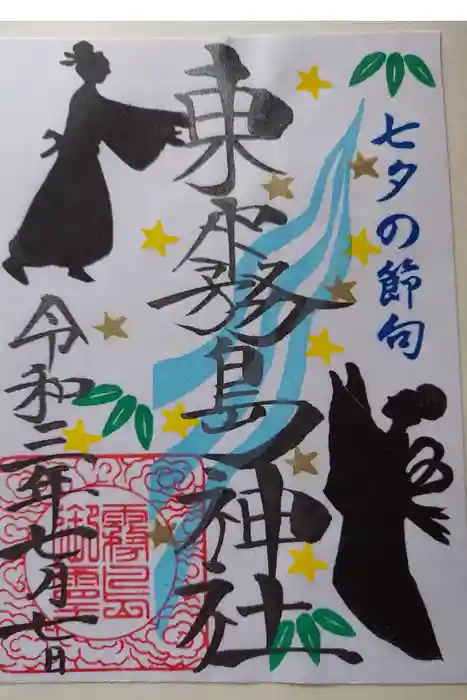 七夕の節句
東霧島神社
令和三年七月七日